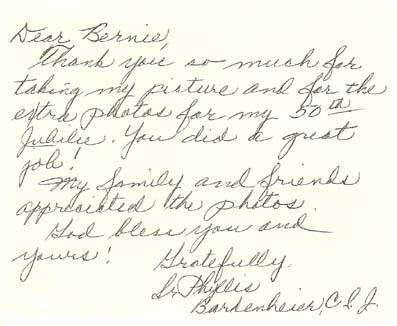 Dear Bernie,
Thank you so much for
taking my picture and for the
extra photos for my 50th
Jubilee. You did a great
job!
My family and friends
appreciated the photos.
God bless you and
yours!
Gratefully,
Sr Phyllis
Bardenheier, C.S.J.